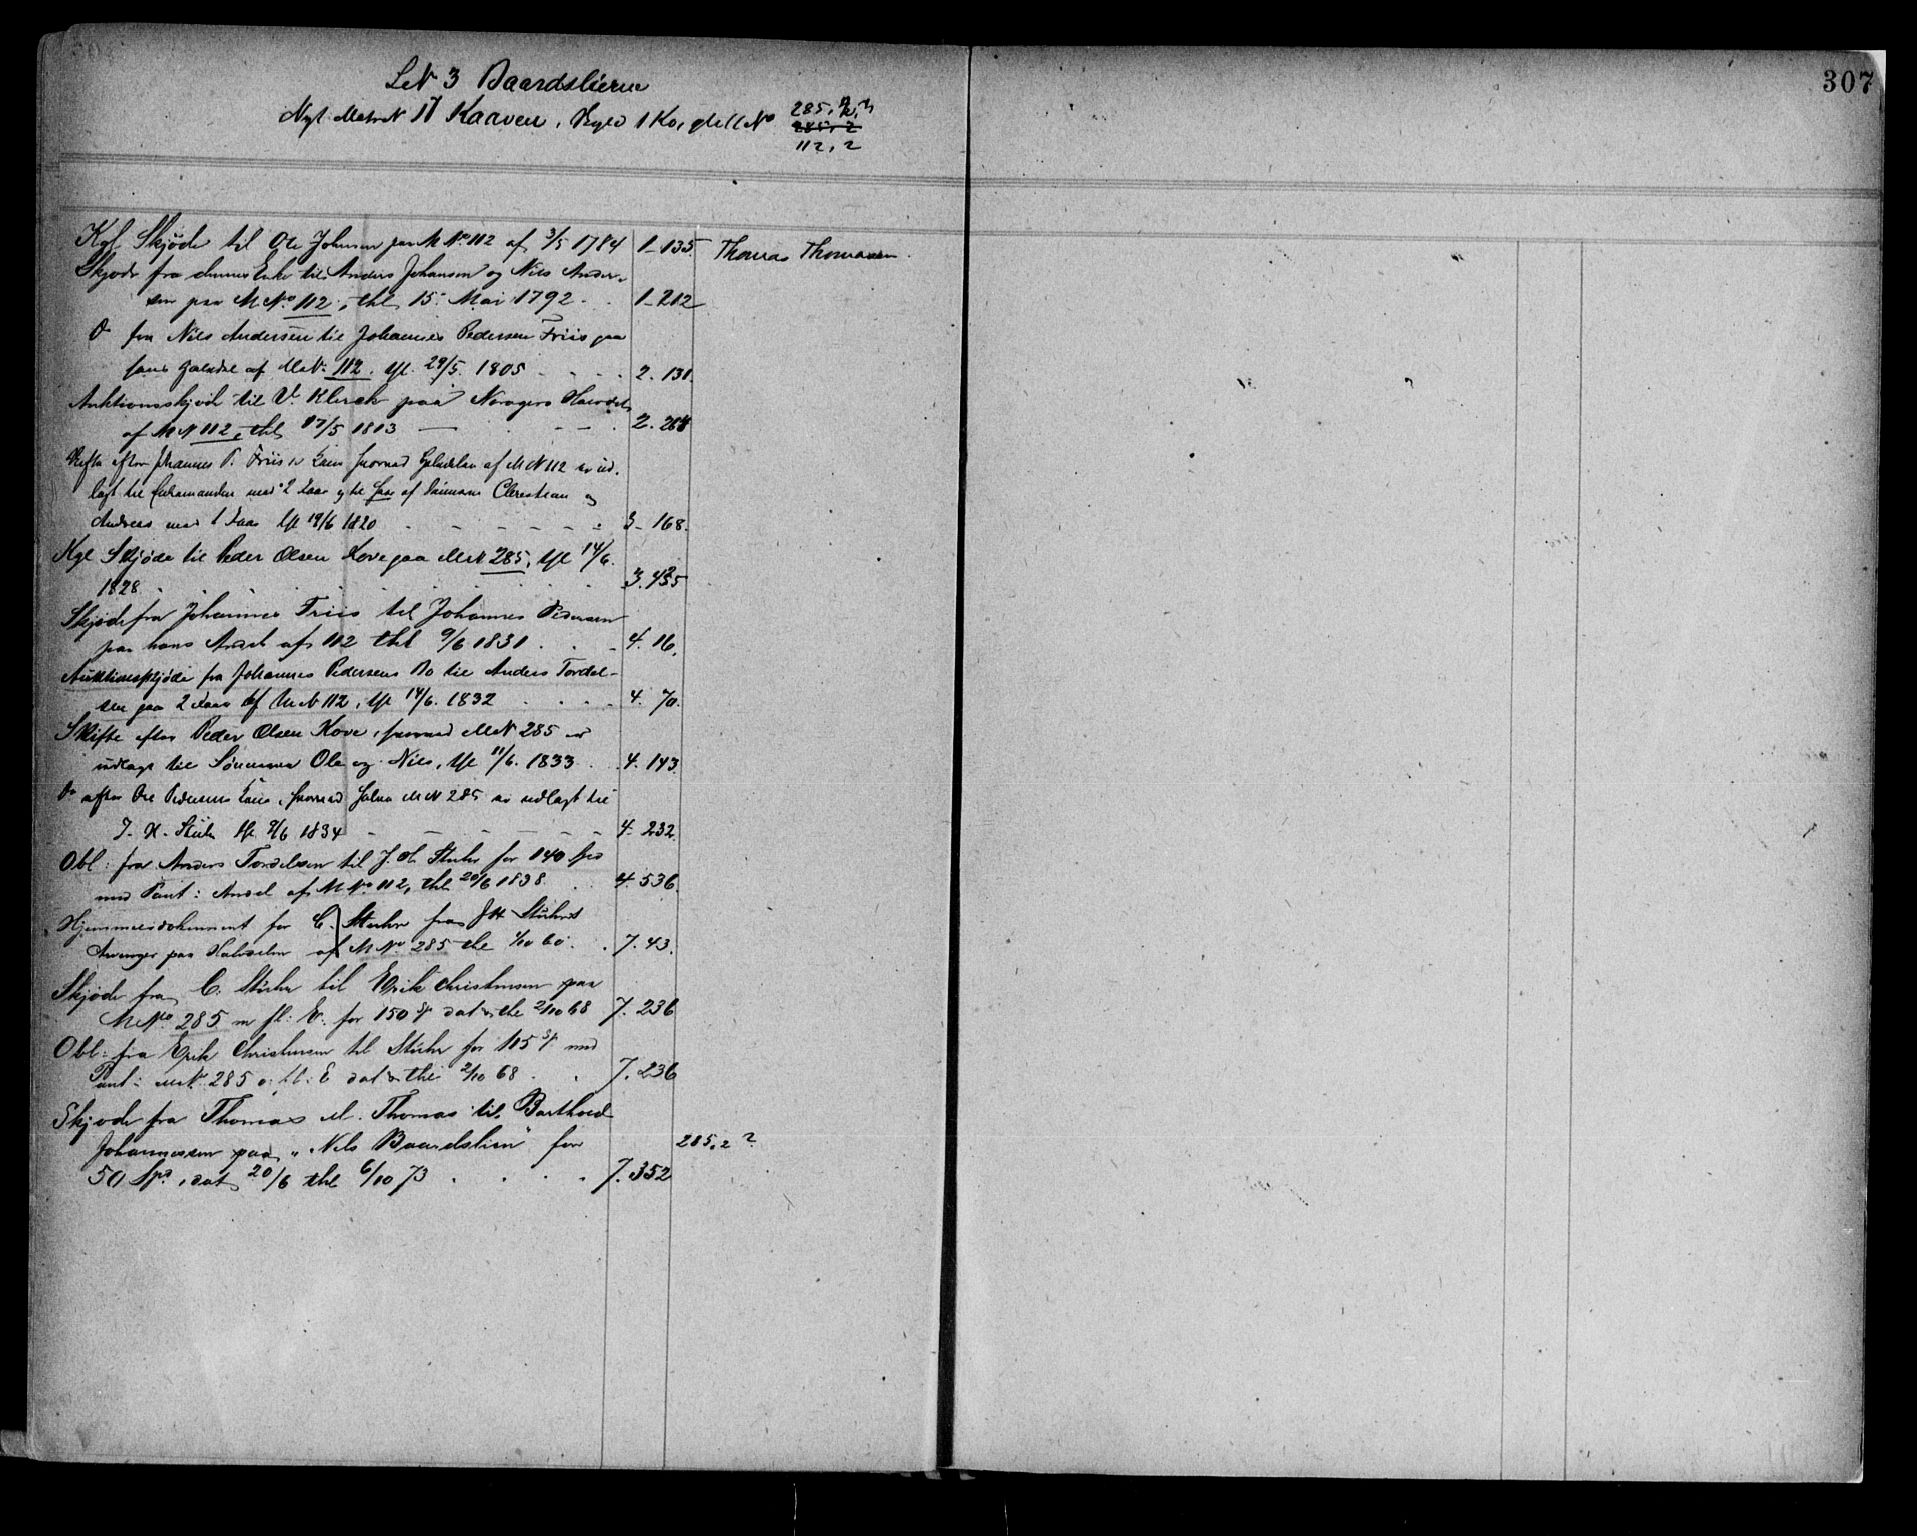 307
LN 3 Baardslierne
Nyt MatrN 17 Kaaven, Skyld 1 Ko, gl MNo 285,
285, 2
112, 2
Kgl Skjøde til Ole Johnsen paa M No 112 af 3/5 1784 1-135. Thomas Thomassen.
Skjøde fra dennes Enke til Anders Johansen og Nils Ander-
sen paa M No 112, thl 15 Mai 1792 1-212
Do fra Nils Andersen til Johannes Pedersen Friis paa
hans halvdel af MN 112, tgl 29/5 1805 2. 131.
Auktionsskjøde til V. Klerck paa Noragers Halvdel
af M N 112, thl 17/5 1813 2. 268
Skifte efter Johannes P. Friis's hvorved Halvdelen af M N 112 er ud-
lagt til Enkemanden med 2 og til af Christian og
Andreas med 1 tgl 19/6 1820 3-168.
Kgl Skjøde til Peder Olsen Kove paa MN 285, tgl 14/6
1828 3. 435
Skjøde fra Johannes Friis til Johannes Pedersen
paa hans Andel af 112 thl 9/6 1831 4. 16.
Auktionsskjøde fra Johannes Pedersens Bo til Anders Tordel-
sen paa 2 af MN 112, tgl 14/6. 1832 4. 70.
Skifte efter Peder Olsen Kove, hvorved MN 285 er
udlagt til Sønnerne Ole og Nils, tgl 11/6. 1833 4. 143
Do efter Ole Pedersens hvorved halve MN 285 er udlagt til
J. H. Stuhr tgl 9/6 1834 4. 232
Obl: fra Anders Tordelsen til J. H. Stuhr for 140 Spd
med Pant i Andel af M No 112, thl 20/6 1838 4. 536.
Hjemmelsdokument for C. Stuhr fra JH Stuhrs
Arvinger paa Halvdelen af M No 285 thl 1/10 60. 7. 43.
Skjøde fra C. Stuhr til Erik Christensen paa
MNo 285 m fl: E. for 150 Sp dat & thl 2/10 68 7. 236
Obl: fra Erik Christensen til Stuhr for 115 Sp med
Pant i MN 285 o. fl: E dat & thl 2/10 68 7. 236
Skjøde fra Thomas M. Thomas til Barthold
Johannessen paa „Nils Baardslien" for 285, 2 ?
50 Spd, dat 20/6 thl 6/10 73 7. 352